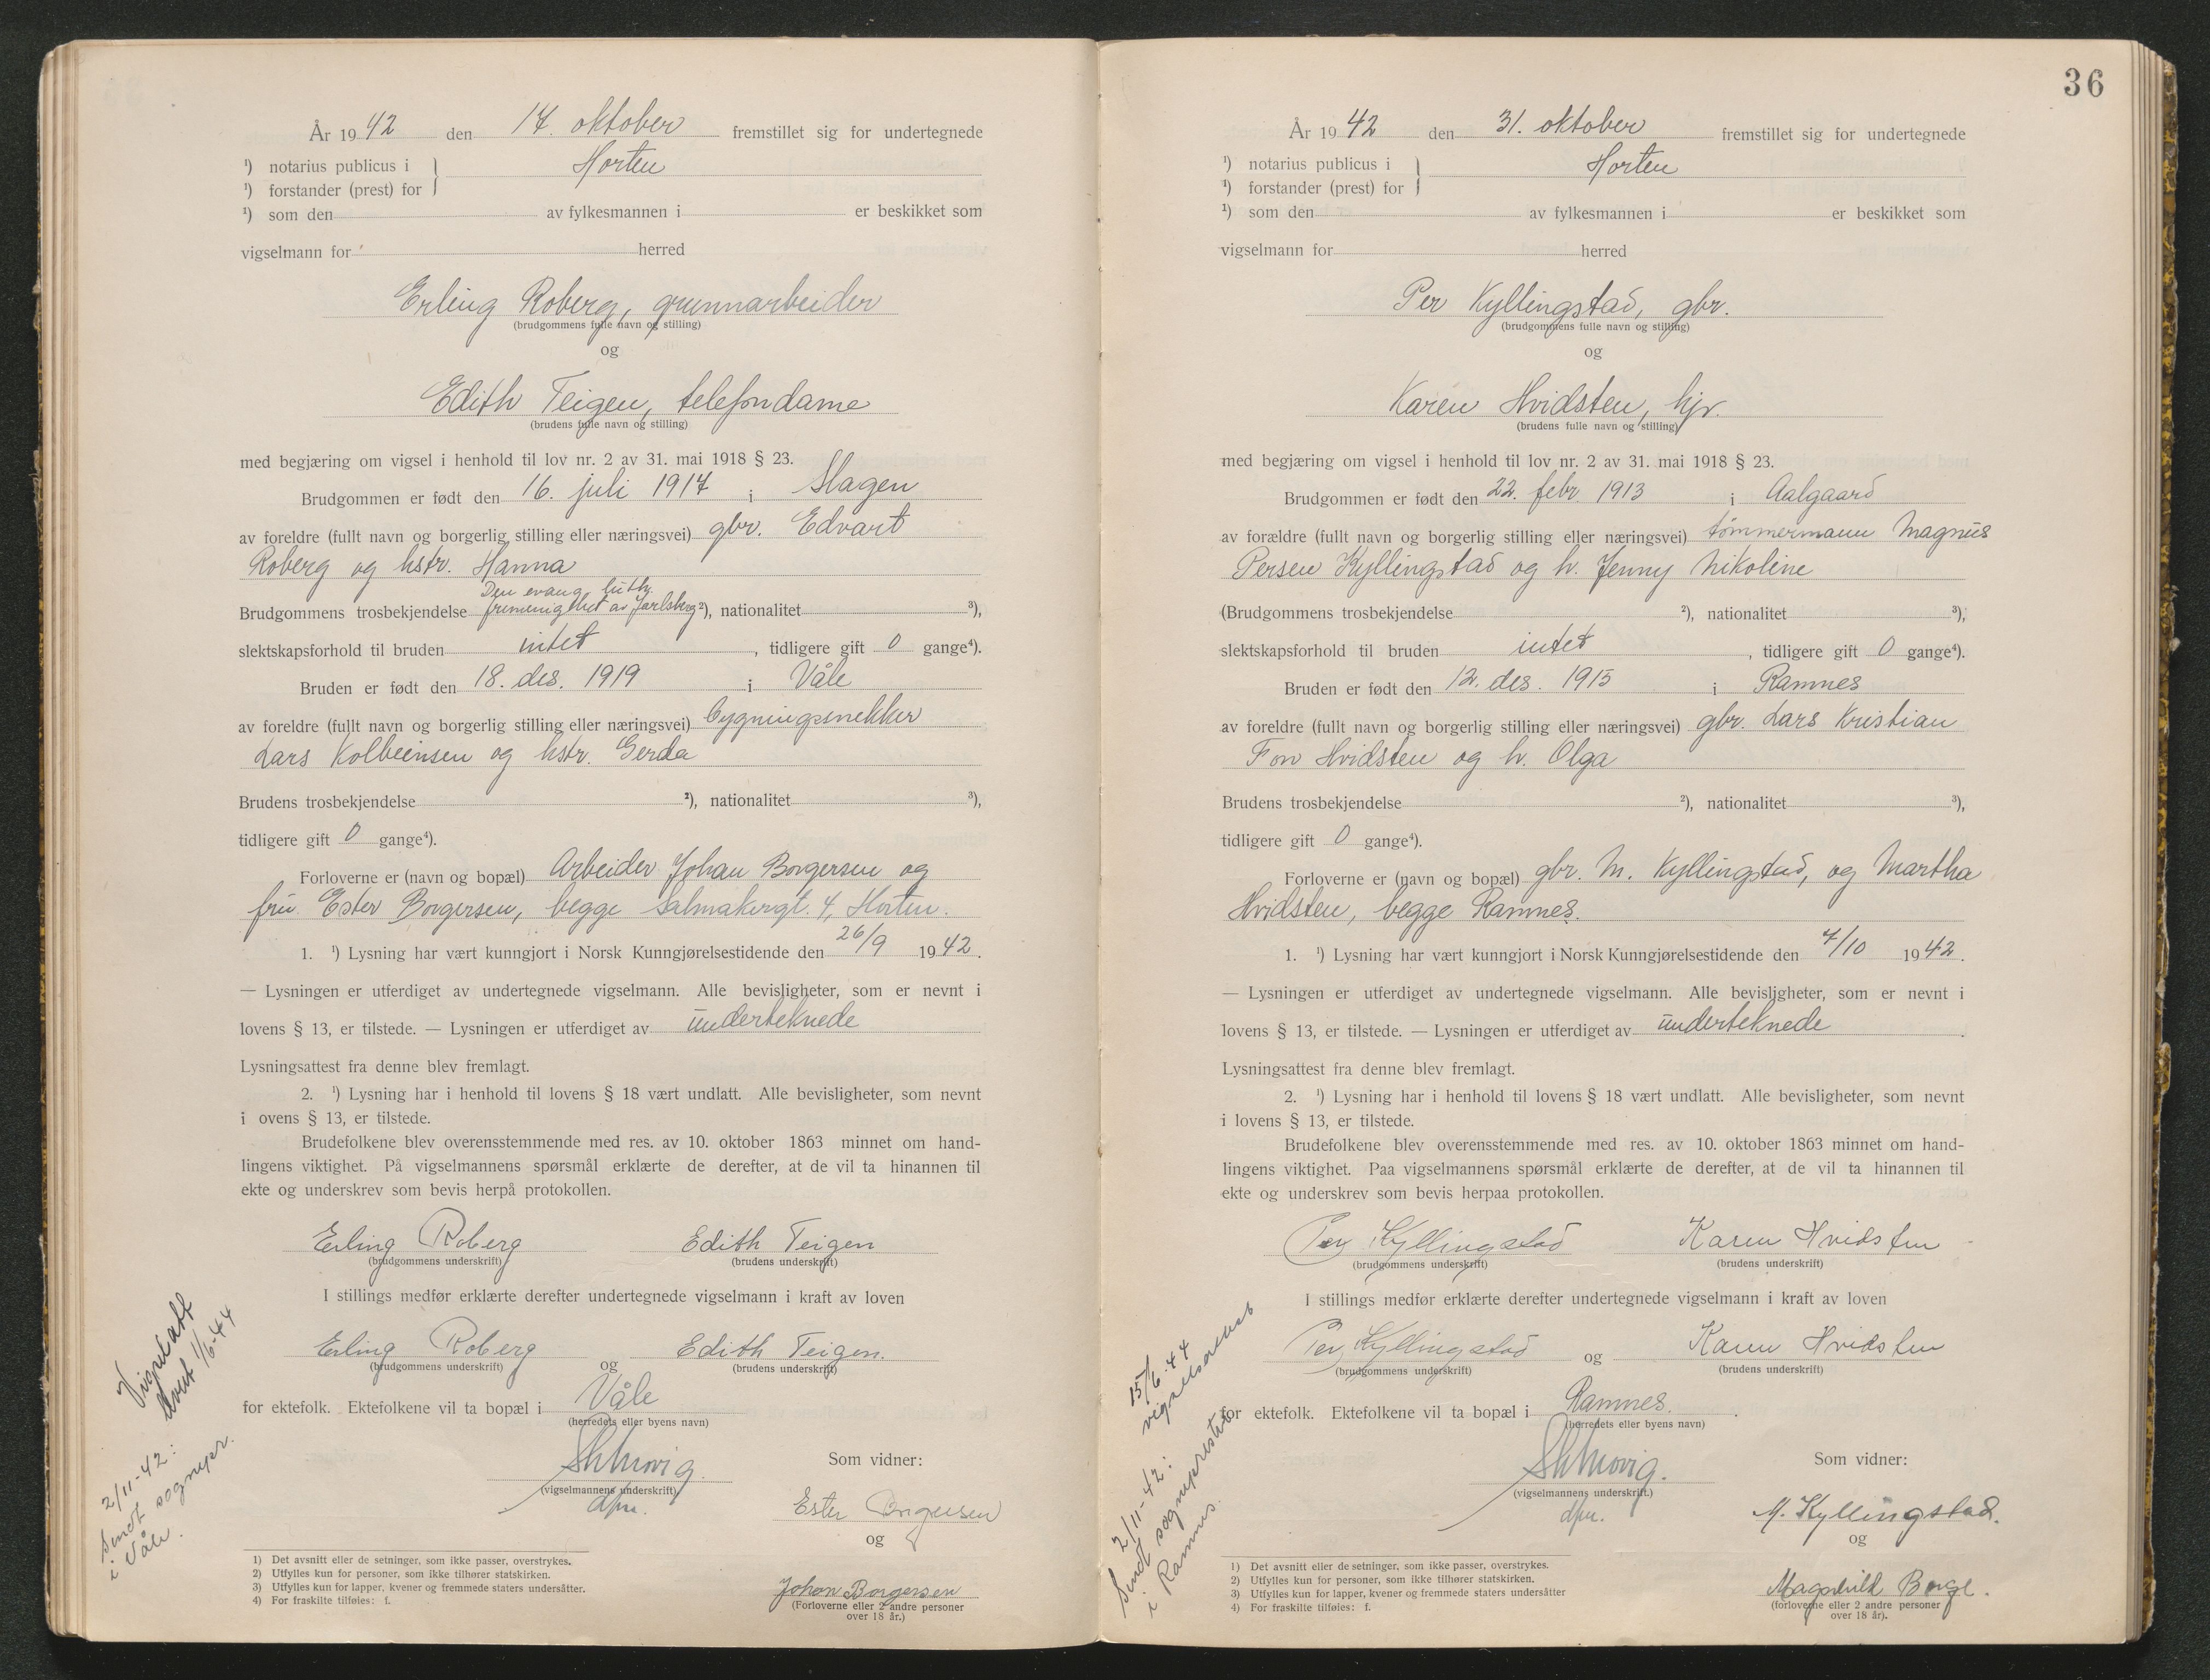 År 1942 den 17. oktober fremstillet sig for undertegnede
¹) notarius publicus i } Horten
¹) forstander (prest) for
¹) som den av fylkesmannen i er beskikket som
vigselmann for herred
Erling Roberg, grunnarbeider
(brudgommens fulle navn og stilling)
og
Edith Teigen, telefondame
(brudens fulle navn og stilling)
med begjæring om vigsel i henhold til lov nr. 2 av 31. mai 1918 § 23.
Brudgommen er født den 16. juli 1917 i Slagen
av foreldre (fullt navn og borgerlig stilling eller næringsvei) gbr. Edvart
Roberg og hstr. Hanna
Den evang. luth.
Brudgommens trosbekjendelse frimenighet av Jarlsberg ²), nationalitet ³),
slektskapsforhold til bruden intet, tidligere gift 0 gange⁴).
Bruden er født den 18. des. 1919 i Våle
av foreldre (fullt navn og borgerlig stilling eller næringsvei) bygningssnekker
Lars Kolbeinsen og hstr. Gerda
Brudens trosbekjendelse ²), nationalitet ³),
tidligere gift 0 gange⁴).
Forloverne er (navn og bopæl) Arbeider Johan Borgersen og
fru Ester Borgersen, begge Salmakergt. 4, Horten.
1. ¹) Lysning har vært kunngjort i Norsk Kunngjørelsestidende den 26/9 1942.
— Lysningen er utferdiget av undertegnede vigselmann. Alle bevisligheter, som er nevnt i
lovens § 13, er tilstede. — Lysningen er utferdiget av underteknede
Lysningsattest fra denne blev fremlagt.
2. ¹) Lysning har i henhold til lovens § 18 vært undlatt. Alle bevisligheter, som nevnt
i ovens § 13, er tilstede.
Brudefolkene blev overensstemmende med res. av 10. oktober 1863 minnet om hand-
lingens viktighet. På vigselmannens spørsmål erklærte de derefter, at de vil ta hinannen til
ekte og underskrev som bevis herpå protokollen.
Erling Roberg Edith Teigen
(brudgommens underskrift) (brudens underskrift)
I stillings medfør erklærte derefter undertegnede vigselmann i kraft av loven
Erling Roberg og Edith Teigen.
(brudgommens underskrift) (brudens underskrift)
for ektefolk. Ektefolkene vil ta bopæl i Våle
(herredets eller byens navn)
Som vidner:
(vigselmannens underskrift)
dfm.
Ester Borgersen
og
Johan Borgersen
(Forloverne eller 2 andre personer
over 18 år.)
Vigselatt
1/6-44
2/11-42:
Sendt sognepr.
i Våle.
1) Det avsnitt eller de setninger, som ikke passer, overstrykes.
2) Utfylles kun for personer, som ikke tilhører statskirken.
3) Utfylles kun for lapper, kvener og fremmede staters undersåtter.
4) For fraskilte tilføies: f.
36
År 1942 den 31. oktober fremstillet sig for undertegnede
¹) notarius publicus i } Horten
¹) forstander (prest) for
¹) som den av fylkesmannen i er beskikket som
vigselmann for herred
Per Kyllingstad, gbr.
(brudgommens fulle navn og stilling)
og
Karen Hvidsten, hjv.
(brudens fulle navn og stilling)
med begjæring om vigsel i henhold til lov nr. 2 av 31. mai 1918 § 23.
Brudgommen er født den 22. febr. 1913 i Aalgaard
av forældre (fullt navn og borgerlig stilling eller næringsvei) tømmermann Magnus
Persen Kyllingstad og h. Jenny Nikoline
(Brudgommens trosbekjendelse ²), nationalitet ³),
slektskapsforhold til bruden intet, tidligere gift 0 gange⁴).
Bruden er født den 12. des. 1915 i Ramnes
av foreldre (fullt navn og borgerlig stilling eller næringsvei) gbr. Lars Kristian
Fon Hvidsten og h. Olga
Brudens trosbekjendelse ²), nationalitet ³),
tidligere gift 0 gange⁴).
Forloverne er (navn og bopæl) gbr. M. Kyllingstad, og Martha
Hvidsten, begge Ramnes.
1. ¹) Lysning har vært kunngjort i Norsk Kunngjørelsestidende den 7/10 1942.
— Lysningen er utferdiget av undertegnede vigselmann. Alle bevisligheter, som er nevnt i
lovens § 13, er tilstede. — Lysningen er utferdiget av underteknede.
Lysningsattest fra denne blev fremlagt.
2. ¹) Lysning har i henhold til lovens § 18 vært undlatt. Alle bevisligheter, som nevnt
i lovens § 13, er tilstede.
Brudefolkene blev overensstemmende med res. av 10. oktober 1863 minnet om hand-
lingens viktighet. Paa vigselmannens spørsmål erklærte de derefter, at de vil ta hinannen til
ekte og underskrev som bevis herpaa protokollen.
Per Kyllingstad Karen Hvidsten
(brudgommens underskrift) (brudens underskrift)
I stillings medfør erklærte derefter undertegnede vigselmann i kraft av loven
Per Kyllingstad og Karen Hvidsten
(brudgommens underskrift) (brudens underskrift)
for ektefolk. Ektefolkene vil ta bopæl i Ramnes.
(herredets eller byens navn)
Som vidner:
(vigselmannens underskrift.)
dfm.
M. Kyllingstad.
og
Magnhild Borge.
(forloverne eller 2 andre personer
over 18 år).
15/6-44
vigselsattest
2/11-42:
Sendt sognepresten
i Ramnes.
1) Det avsnitt eller de setninger, som ikke passer, overstrykes.
2) Utfylles kun for personer, som ikke tilhører statskirken.
3) Utfylles kun for lapper, kvener og fremmede staters undersåtter
4) For fraskilte tilføies: f.